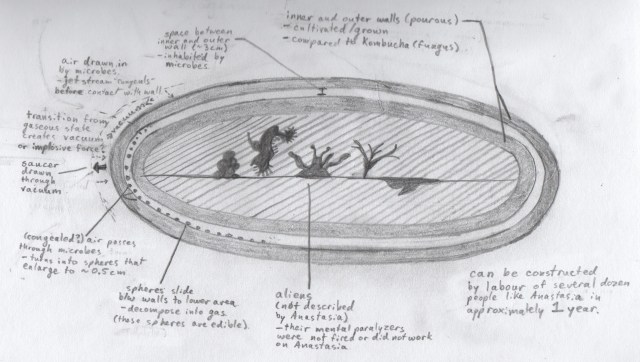 space between
inner and outer
wall (~3cm)
- inhabited by
microbes.
inner and outer walls (pourous)
- cultivated/grown
- compared to Kombucha (fungus)
air drawn in
by microbes.
- jet stream "congeals"
before contact with walls.
vacuum
transition from
gaseous state
creates vacuum
or implosive force?
saucer
drawn
through
vacuum.
(congealed?) air passes
through microbes
- turns into spheres that
enlarge to ~0.5cm
spheres slide
btw walls to lower area
- decompose into gas
(those spheres are edible).
aliens
(not described
by Anastasia)
- their mental paralyzers
were not fired or did not work
on Anastasia
can be constructed
by labour of several dozen
people like Anastasia in
approximately 1 year.